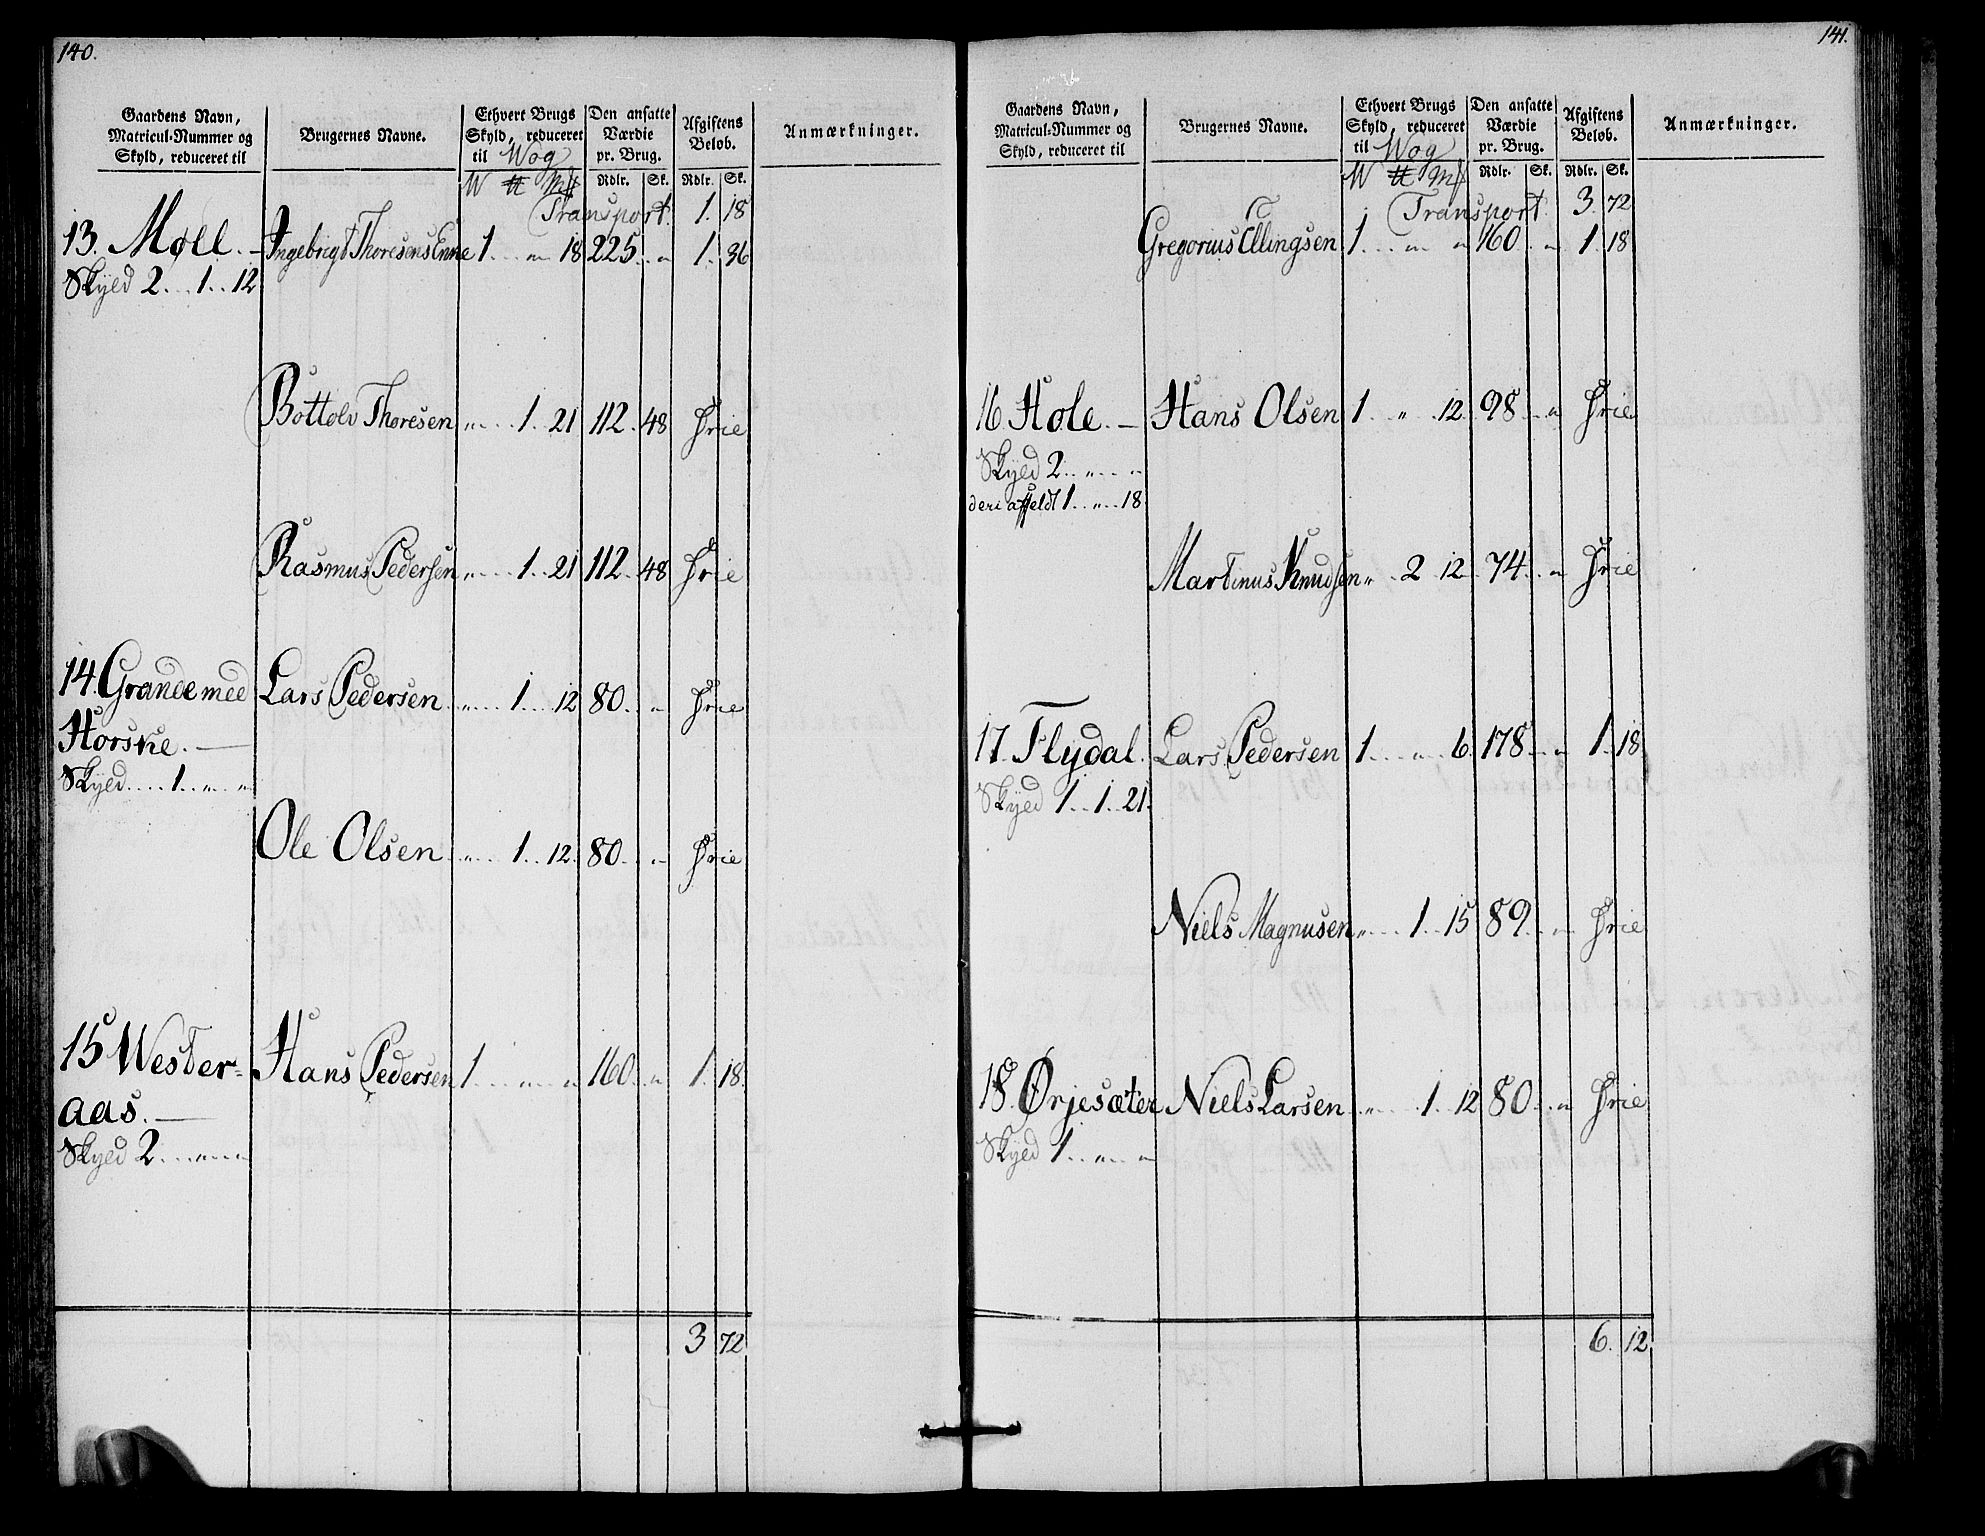 140.
Gaardens Navn, Matricul-Nummer og Skyld, reduceret til | Brugernes Navne. | Ethvert Brugs Skyld, reduceret til Wog | Den ansatte Værdie pr. Brug. | Afgiftens Beløb. | Anmærkninger.
W ℔ Mk | Rdlr. Sk. | Rdlr. Sk.
Transport 1. 18
13. Moll. – Ingebrigt Thoresens Enne 1 . . „ 18 225 . . „ 1. 36
Skyld 2 . . 1 . . 12
Bottolv Thoresen „ . . 1 . . 21 112 . 48 Frie
Rasmus Pedersen „ . . 1 . . 21 112 . 48 Frie
14. Grande med Lars Pedersen „ . . 1 . . 12 80 . . „ Frie
Horske. —
Skyld . . . 1 . . „ . . „
Ole Olsen „ . . 1 . . 12. 80 . . „ Frie
15 Wester= Hans Pedersen 1 . . „ . . „ 160 . . „ 1. 18.
aas. —
Skyld 2 . . „ . . „
3 72
141.
Gaardens Navn, Matricul-Nummer og Skyld, reduceret til | Brugernes Navne. | Ethvert Brugs Skyld, reduceret til Wog | Den ansatte Værdie pr. Brug. | Afgiftens Beløb. | Anmærkninger.
W ℔ Mk | Rdlr. Sk. | Rdlr. Sk.
Transport 3. 72
Gregorius Ellingsen 1 . . „ . . „ 160 . . „ 1. 18
16 Hole. – Hans Olsen 1 . . „ . . 12 98 . . „ Frie
Skyld 2 . . „ . . „
deri affeldt 1 . . „ . . 18
Martinus Knudsen „ . . 2 12 74 . . „ Frie
17. Flydal. Lars Pedersen 1 . . „ . . 6 178 . . „ 1. 18
Skyld 1 . . 1 . . 21.
Niels Magnusen „ . . 1 . . 15 89 . . „ Frie
18. Ørjesæter Niels Larsen „ . . 1 . . 12 80 . . „ Frie
Skyld 1 . . „ . . „
6. 12